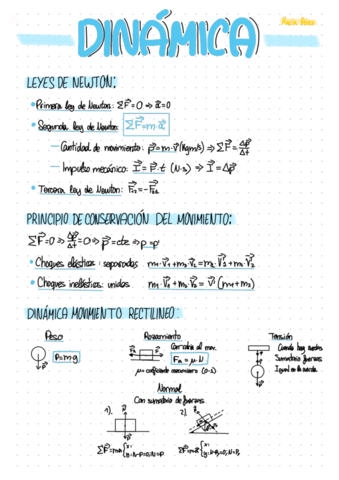 DINÁMICA
LEYES DE NEWTON:
• Primera ley de Newton: ΣF⃗=0 => a⃗=0
• Segunda ley de Newton: ΣF⃗=m·a⃗
— Cantidad de movimiento: p⃗=m·v⃗ (kg m/s) => ΣF⃗= Δp⃗/Δt
— Impulso mecánico: I⃗=F⃗·t (N·s) => I⃗=Δp⃗
• Tercera ley de Newton: F⃗₁₂=-F⃗₂₁
PRINCIPIO DE CONSERVACIÓN DEL MOVIMIENTO:
ΣF⃗=0 => Δp⃗/Δt=0 => p⃗=cte => p=p'
• Choques elásticos: separados m₁·v⃗₁+m₂·v⃗₂=m₁·v⃗'₁+m₂·v⃗'₂
• Choques inelásticos: unidos m₁·v⃗₁+m₂·v⃗₂=v⃗'(m₁+m₂)
DINÁMICA MOVIMIENTO RECTILINEO:
Peso Rozamiento Tensión
P=m·g
Contraria al mov.
Fr=μ·N
μ= coeficiente rozamiento (0-1)
Cuando hay cuerdas
Sumatorio fuerzas
Igual en la cuerda
Normal
Con sumatorio de fuerzas
1) 2)
ΣF⃗=m·a⃗ { x: y: N-P=0; N=P
ΣF⃗=m·a⃗ { x: y: N-Py=0; N=Py